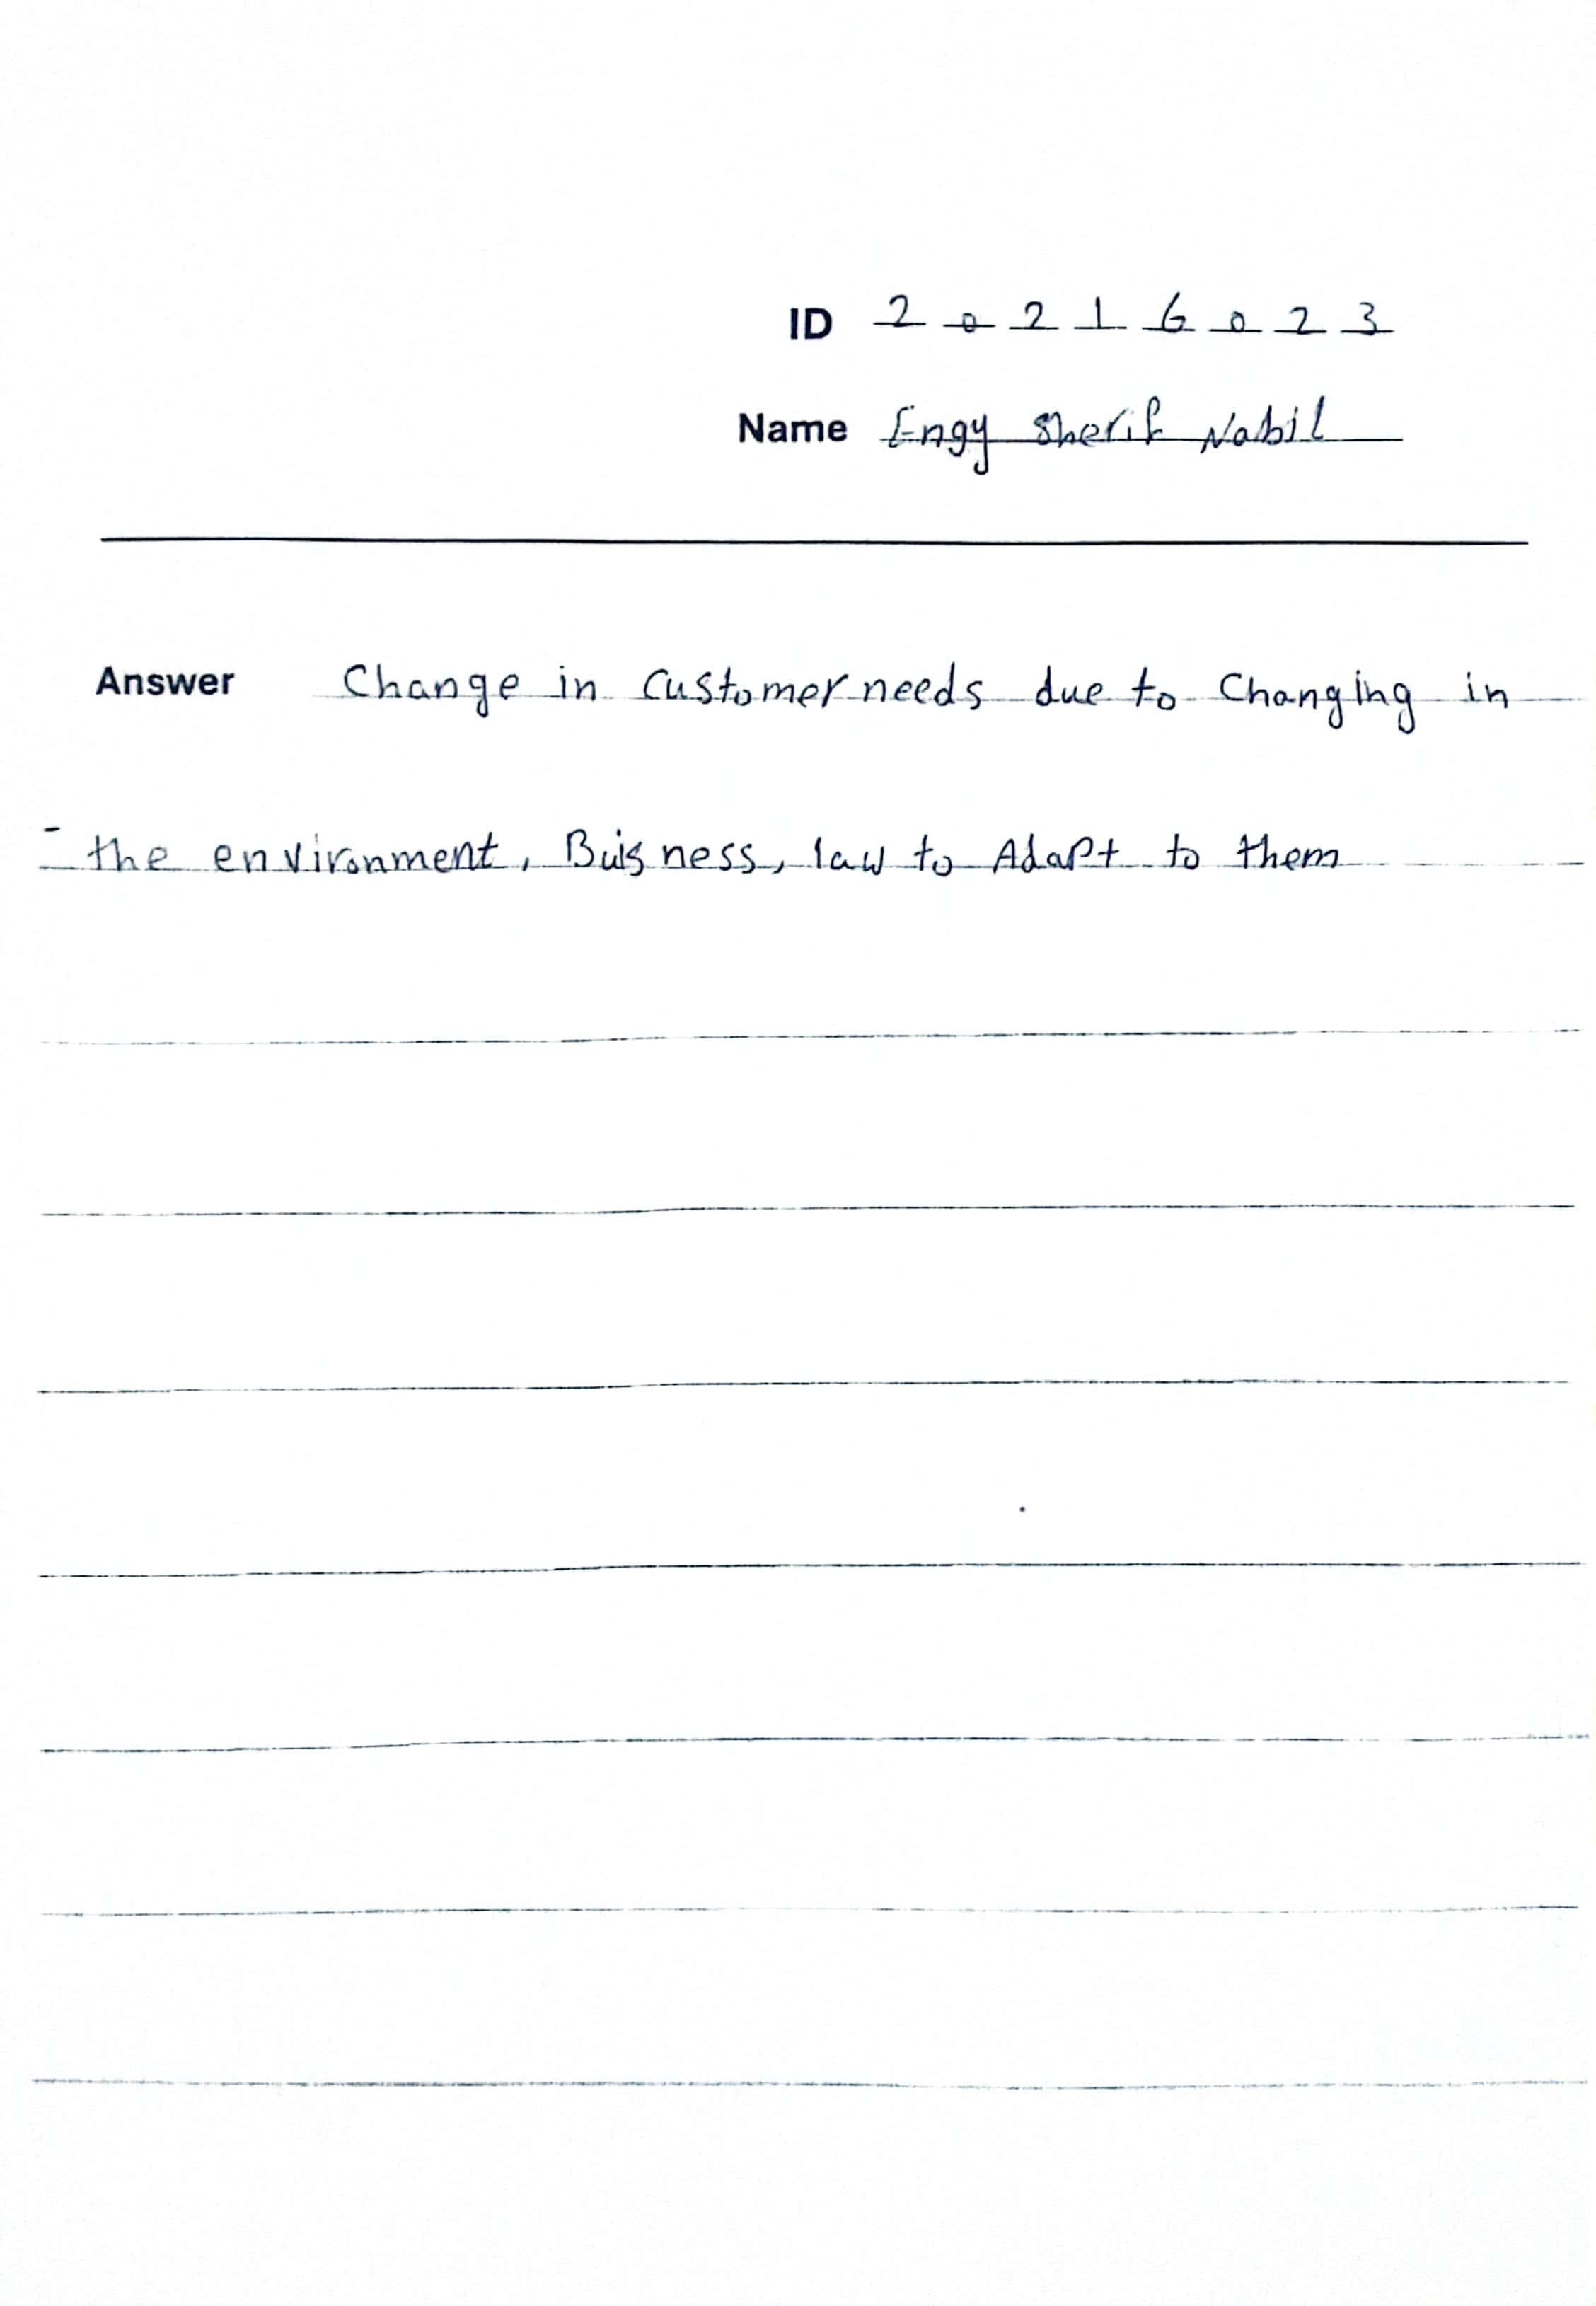 ID 2 0 2 1 6 0 2 3
Name Engy Sherif Nabil
Answer Change in Customer needs due to Changing in
the environment, Buisness, law to Adapt to them